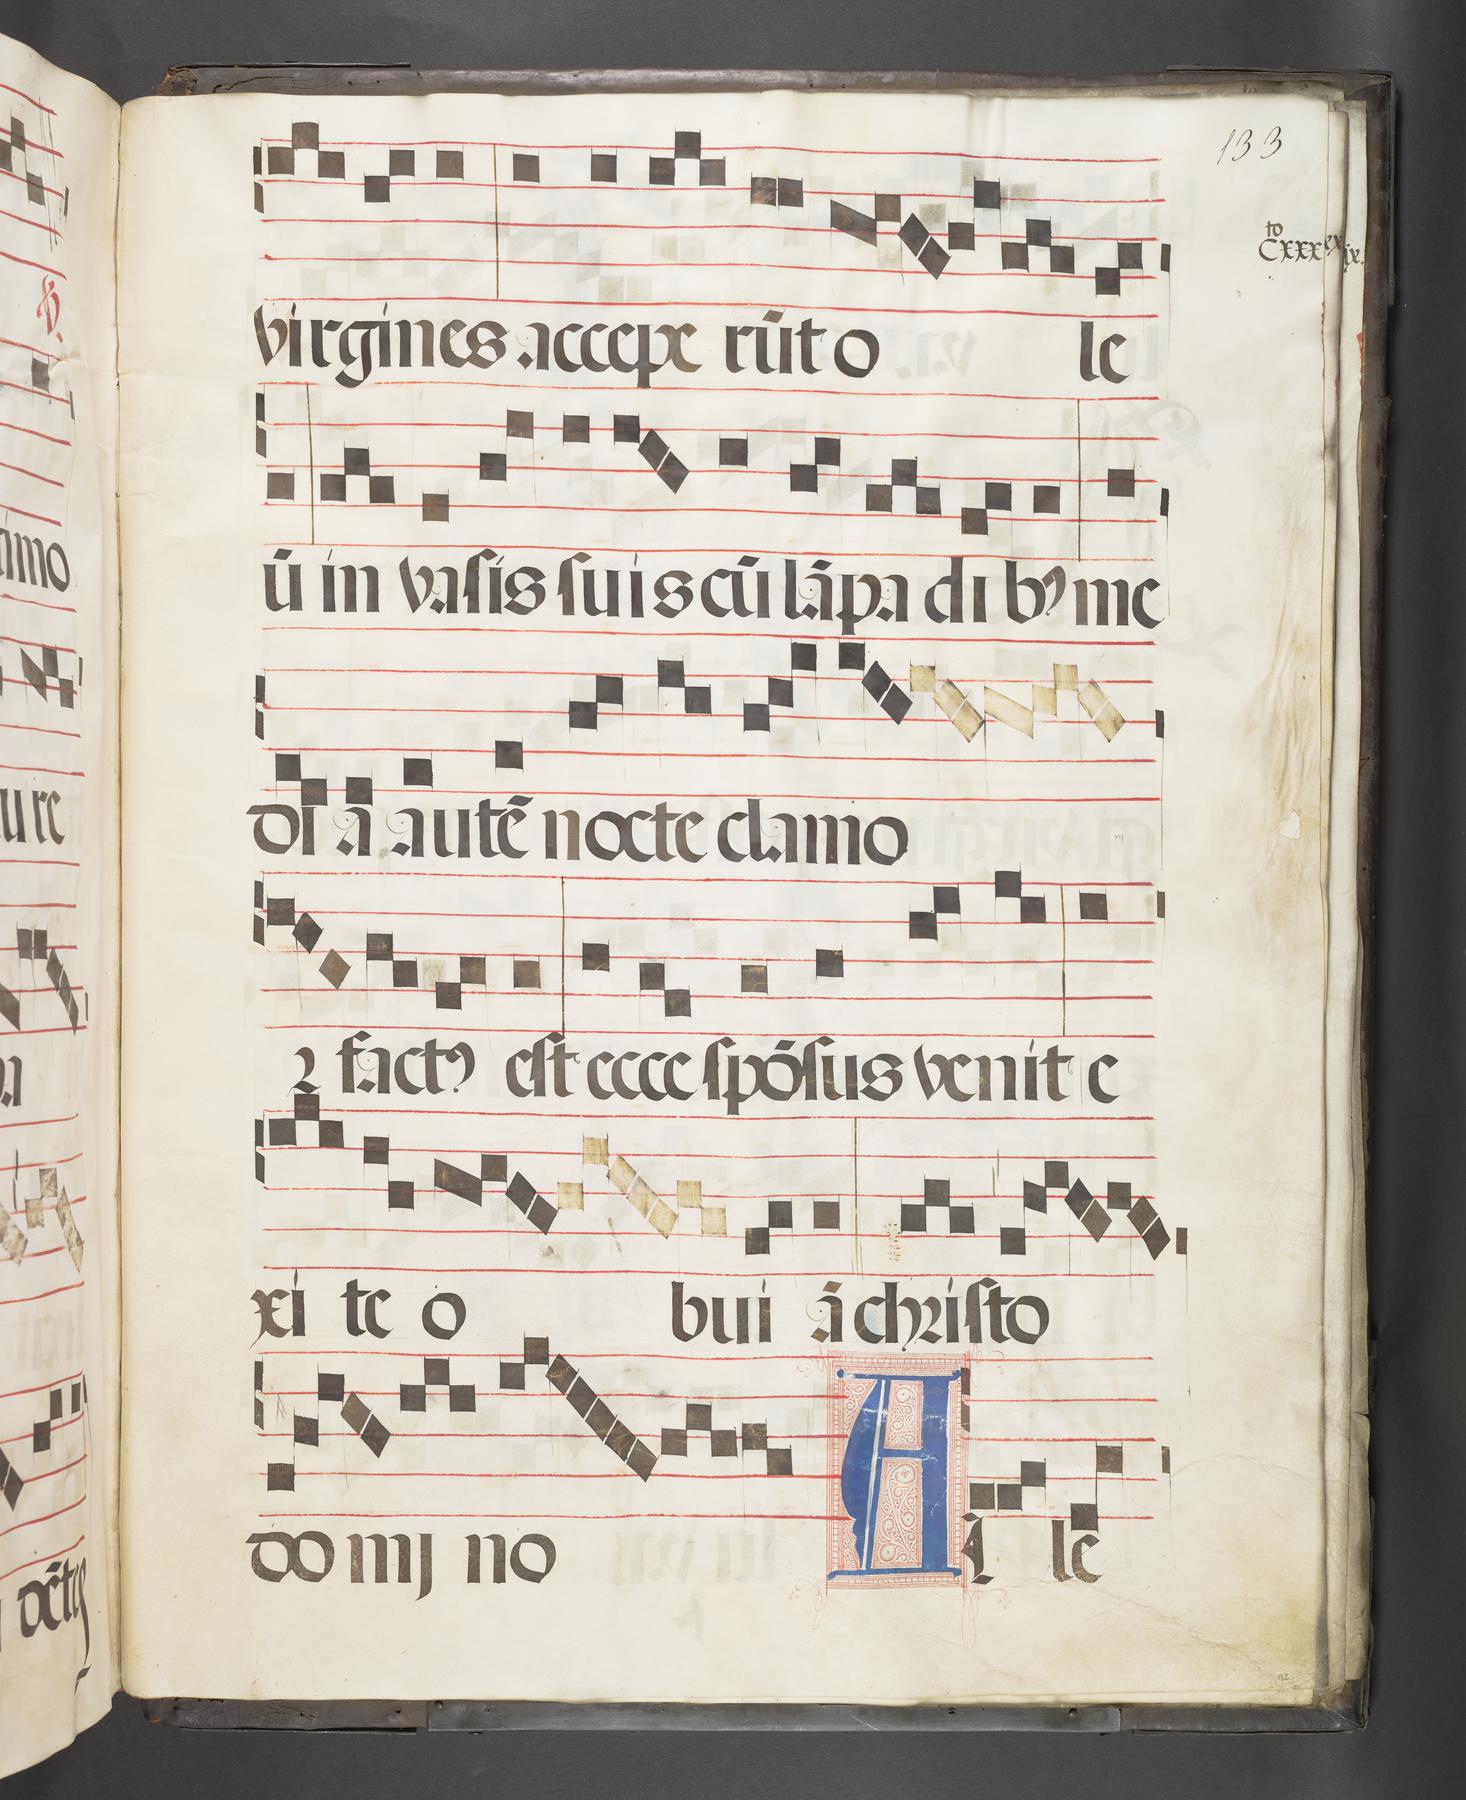 133
to
Cxxx
virgines accepe rūt o le
ū in vasis suis cū lāpa di bꝰ me
di ā autē nocte clamo
2 factꝰ est ecce spōsus venit e
xi te o bui ā christo
do mj no A l le
imo
u re